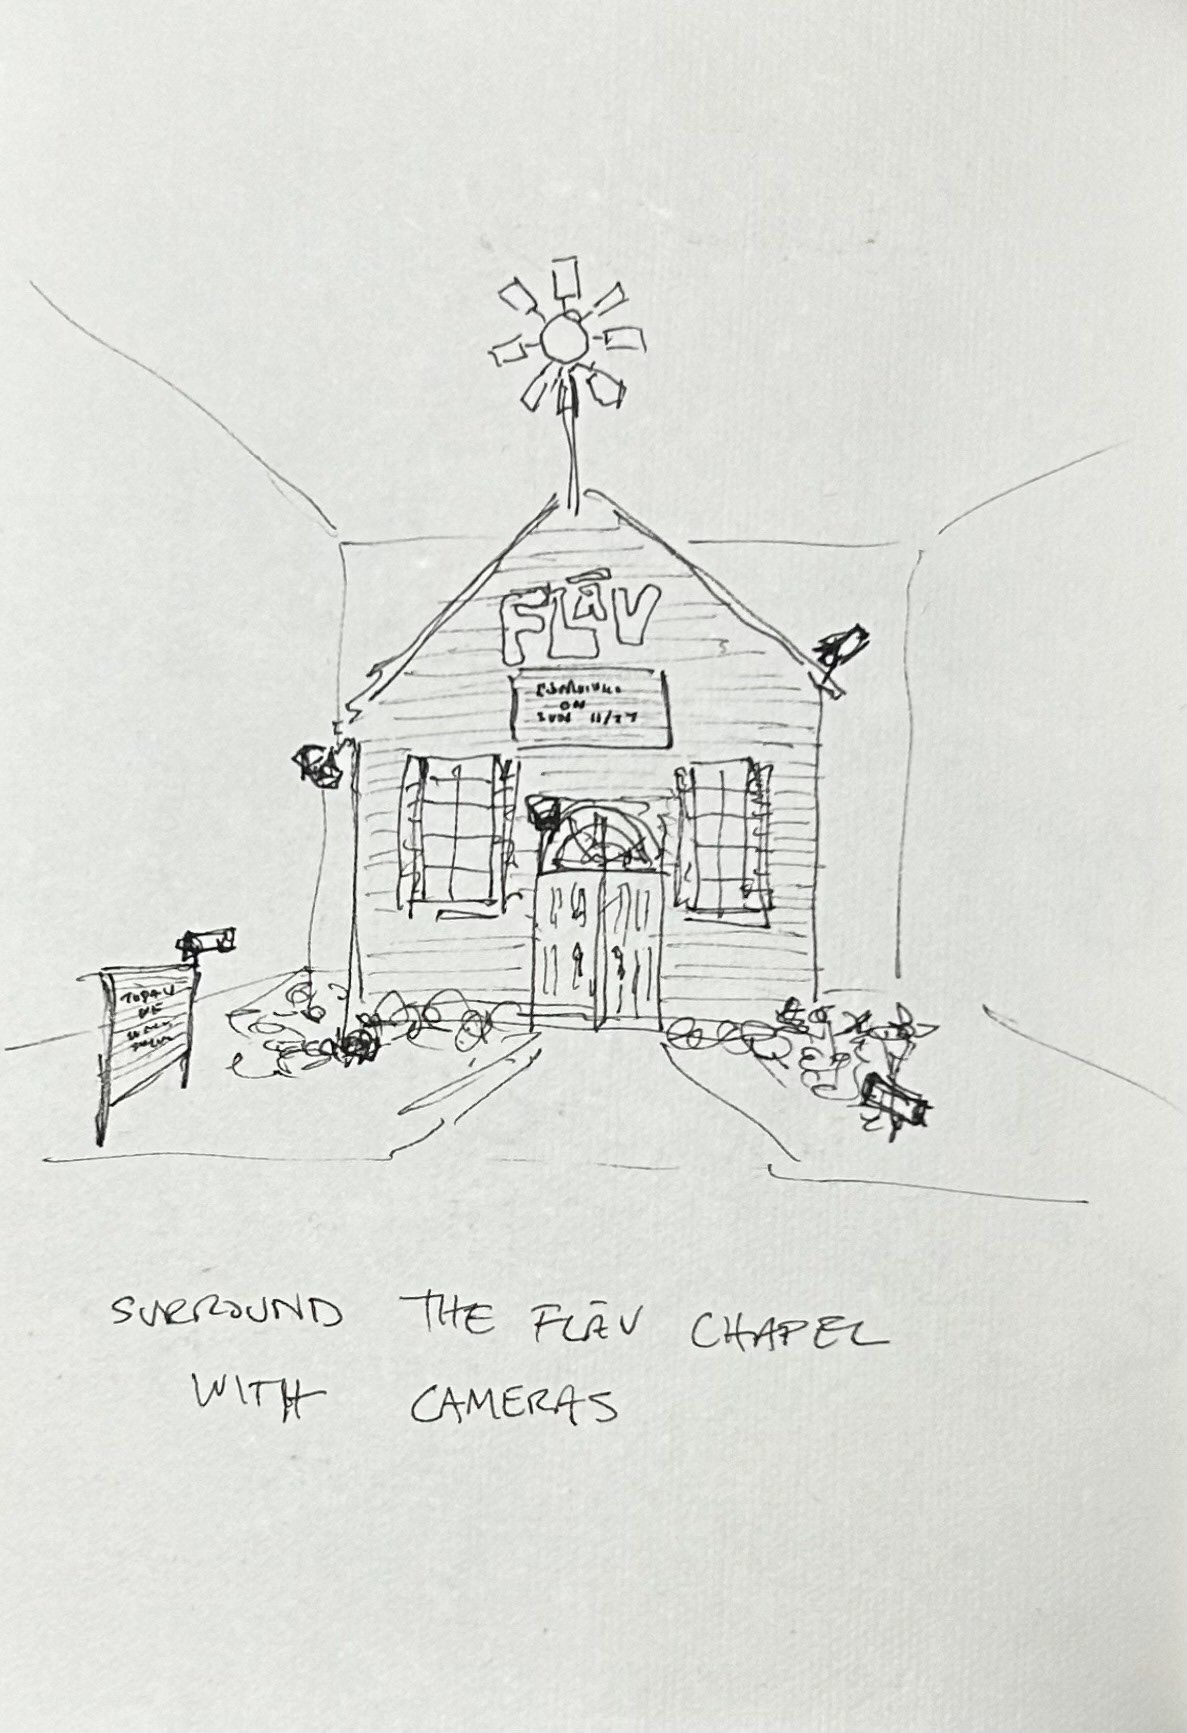 FLĀV
ON
11/27
TODAY
WE
SURROUND THE FLĀV CHAPEL
WITH CAMERAS